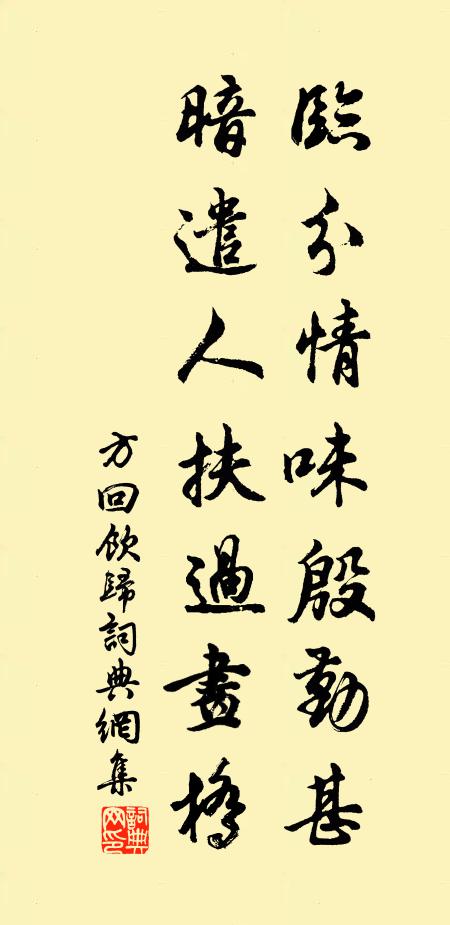 臨分情味殷勤甚
暗遣人扶過畫橋
方回飲歸詞典網集
詞典
网印